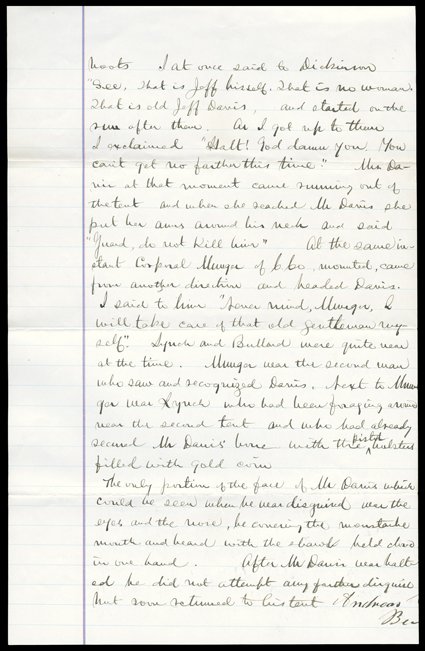 boots I at once said to Dickinson
"See, that is Jeff hisself. That is no woman.
That is old Jeff Davis, and started on the
run after them. As I got up to them
I exclaimed "Halt! God damn you You
can't get no farther this time." Mrs Da-
vis at that moment came running out of
the tent and when she reached Mr Davis she
put her arms around his neck and said
"Guard, do not kill him" At the same in-
stant Corporal Munger of C. Co, mounted, came
from another direction and headed Davis.
I said to him "never mind, Munger, I
will take care of that old gentleman my-
self". Lynch and Bullard were quite near
at the time. Munger was the second man
who saw and recognized Davis. Next to Mun-
ger was Lynch who had been foraging around
near the second tent and who had already
secured Mr Davis' horse with the pistol holsters
filled with gold coin
The only portion of the face of Mr Davis which
could be seen when he was disguised was the
eyes and the nose, he covering the moustache
mouth and beard with the shawl held close
in one hand. After Mr Davis was halt-
ed he did not attempt any farther disguise
but soon returned to his tent Andreas
Bee